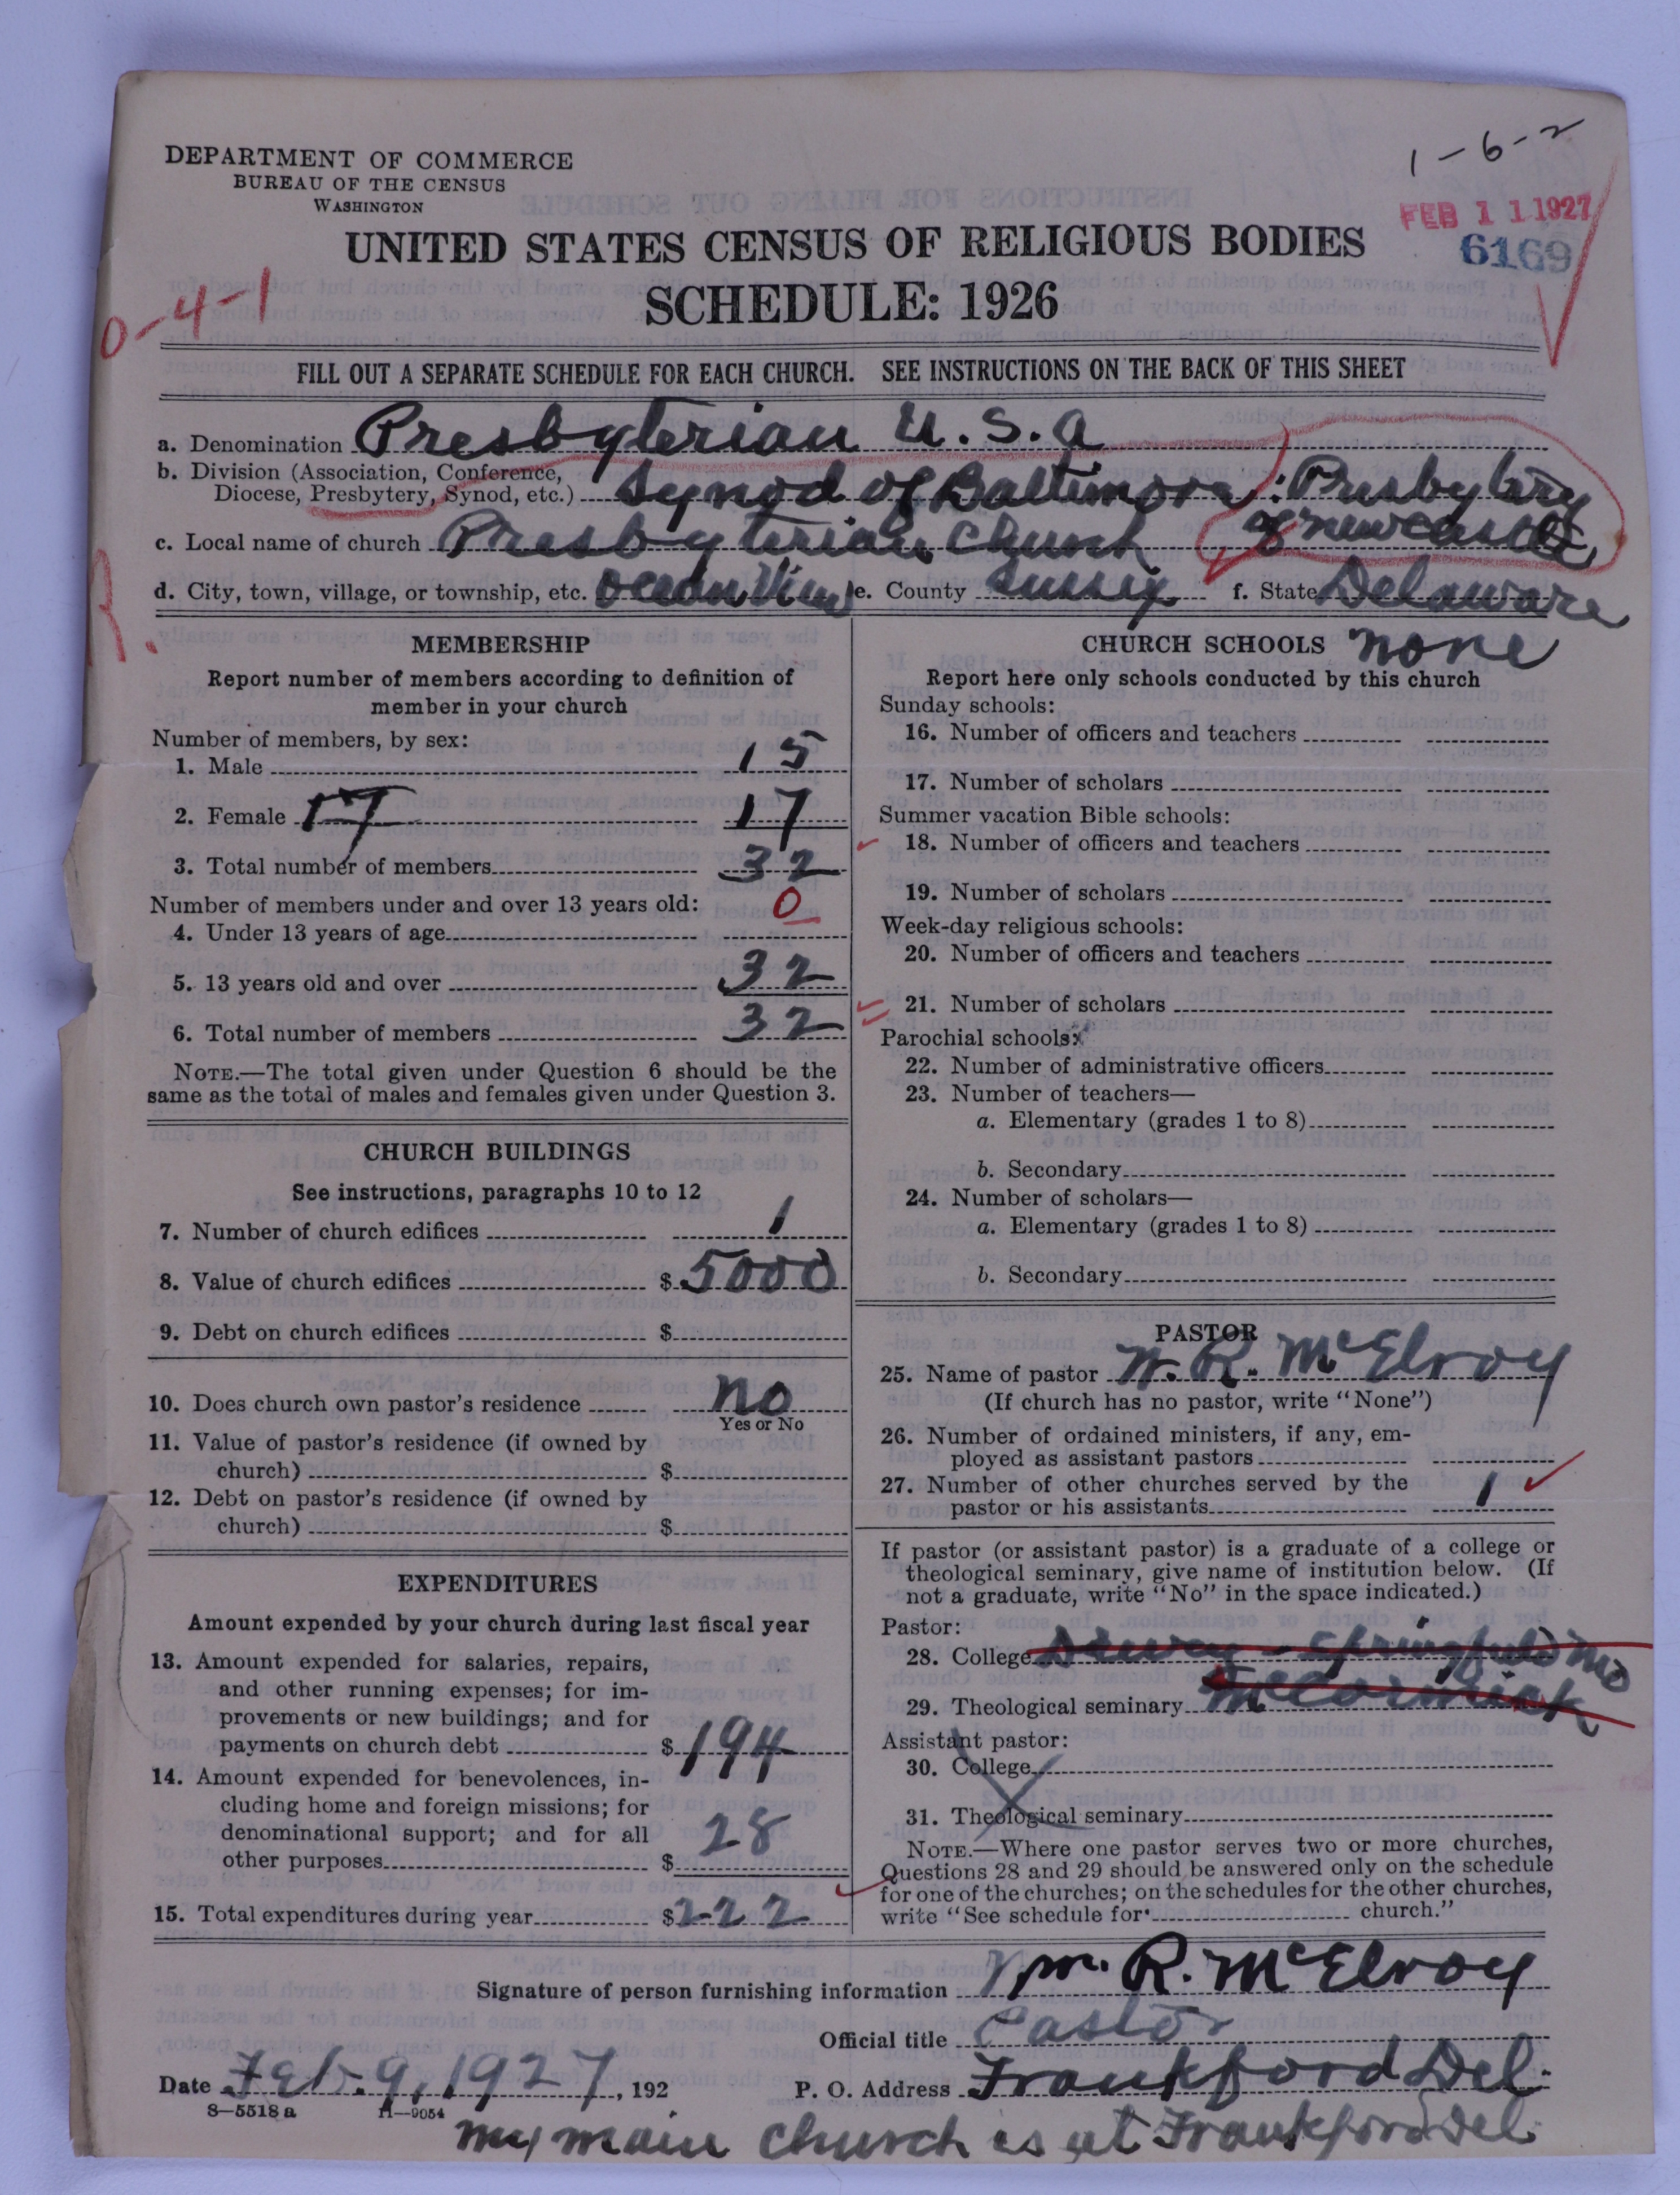 1-6-2
DEPARTMENT OF COMMERCE
BUREAU OF THE CENSUS
WASHINGTON
FEB 11 1927
6169
UNITED STATES CENSUS OF RELIGIOUS BODIES
SCHEDULE: 1926
0-4-1
FILL OUT A SEPARATE SCHEDULE FOR EACH CHURCH. SEE INSTRUCTIONS ON THE BACK OF THIS SHEET
a. Denomination Presbyterian U.S.A
b. Division (Association, Conference,
Diocese, Presbytery, Synod, etc.) Synod of Baltimore: Presbytery
of Newcastle
c. Local name of church Presbyterian Church
d. City, town, village, or township, etc. Ocean View e. County Sussex f. State Delaware
MEMBERSHIP
Report number of members according to definition of
member in your church
Number of members, by sex:
1. Male 15
2. Female 17 17
3. Total number of members 32
Number of members under and over 13 years old:
4. Under 13 years of age 0
5. 13 years old and over 32
6. Total number of members 32
NOTE.—The total given under Question 6 should be the
same as the total of males and females given under Question 3.
CHURCH BUILDINGS
See instructions, paragraphs 10 to 12
7. Number of church edifices 1
8. Value of church edifices $ 5000
9. Debt on church edifices $
10. Does church own pastor's residence No
Yes or No
11. Value of pastor's residence (if owned by
church) $
12. Debt on pastor's residence (if owned by
church) $
EXPENDITURES
Amount expended by your church during last fiscal year
13. Amount expended for salaries, repairs,
and other running expenses; for im-
provements or new buildings; and for
payments on church debt $ 194
14. Amount expended for benevolences, in-
cluding home and foreign missions; for
denominational support; and for all
other purposes $ 28
15. Total expenditures during year $ 222
CHURCH SCHOOLS None
Report here only schools conducted by this church
Sunday schools:
16. Number of officers and teachers
17. Number of scholars
Summer vacation Bible schools:
18. Number of officers and teachers
19. Number of scholars
Week-day religious schools:
20. Number of officers and teachers
21. Number of scholars
Parochial schools:
22. Number of administrative officers
23. Number of teachers—
a. Elementary (grades 1 to 8)
b. Secondary
24. Number of scholars—
a. Elementary (grades 1 to 8)
b. Secondary
PASTOR
25. Name of pastor W. R. McElroy
(If church has no pastor, write "None")
26. Number of ordained ministers, if any, em-
ployed as assistant pastors
27. Number of other churches served by the
pastor or his assistants 1
If pastor (or assistant pastor) is a graduate of a college or
theological seminary, give name of institution below. (If
not a graduate, write "No" in the space indicated.)
Pastor:
28. College Drury - Springfield Mo
29. Theological seminary McCormick
Assistant pastor:
30. College
31. Theological seminary
NOTE.—Where one pastor serves two or more churches,
Questions 28 and 29 should be answered only on the schedule
for one of the churches; on the schedules for the other churches,
write "See schedule for church."
Signature of person furnishing information Wm. R. McElroy
Official title Pastor
Date Feb. 9, 1927, 192 P. O. Address Frankford Del.
8-5518 a 11-9054
My main church is at Frankford Del.